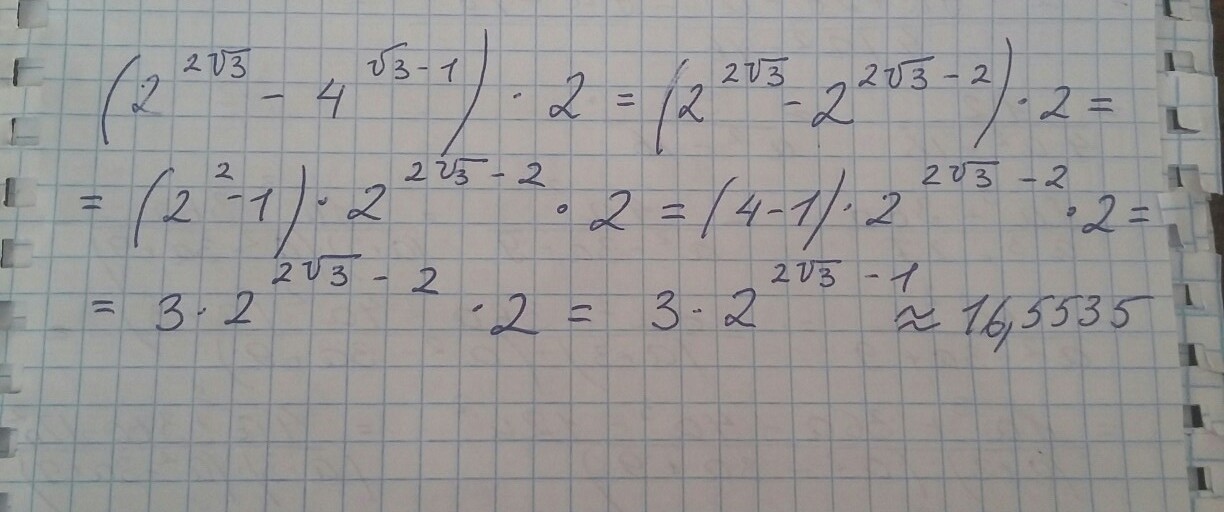 (2^{2√3} - 4^{√3-1}) · 2 = (2^{2√3} - 2^{2√3-2}) · 2 =
= (2^2 - 1) · 2^{2√3-2} · 2 = (4-1) · 2^{2√3-2} · 2 =
= 3 · 2^{2√3-2} · 2 = 3 · 2^{2√3-1} ≈ 16,5535